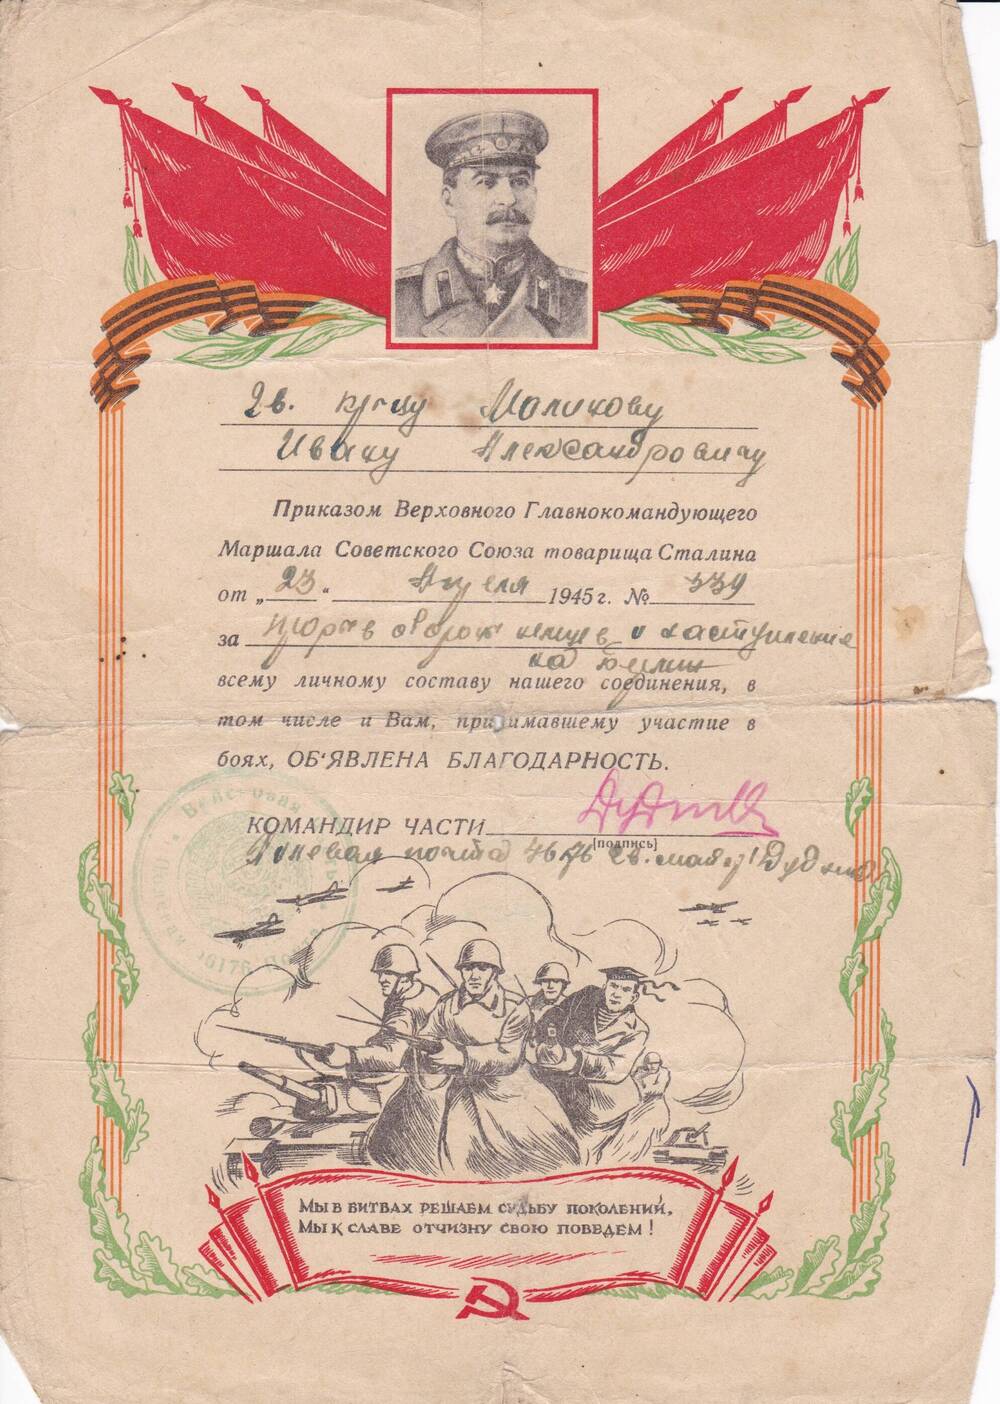 Гв. кр-цу Маликову
Ивану Александровичу
Приказом Верховного Главнокомандующего
Маршала Советского Союза товарища Сталина
от „23“ Апреля 1945 г. № 339
за прорыв оборон немцев и наступление
на Берлин
всему личному составу нашего соединения, в
том числе и Вам, принимавшему участие в
боях, ОБ'ЯВЛЕНА БЛАГОДАРНОСТЬ.
КОМАНДИР ЧАСТИ
[подпись]
Полевая почта гв.
МЫ В БИТВАХ РЕШАЕМ СУДЬБУ ПОКОЛЕНИЙ,
МЫ К СЛАВЕ ОТЧИЗНУ СВОЮ ПОВЕДЕМ!